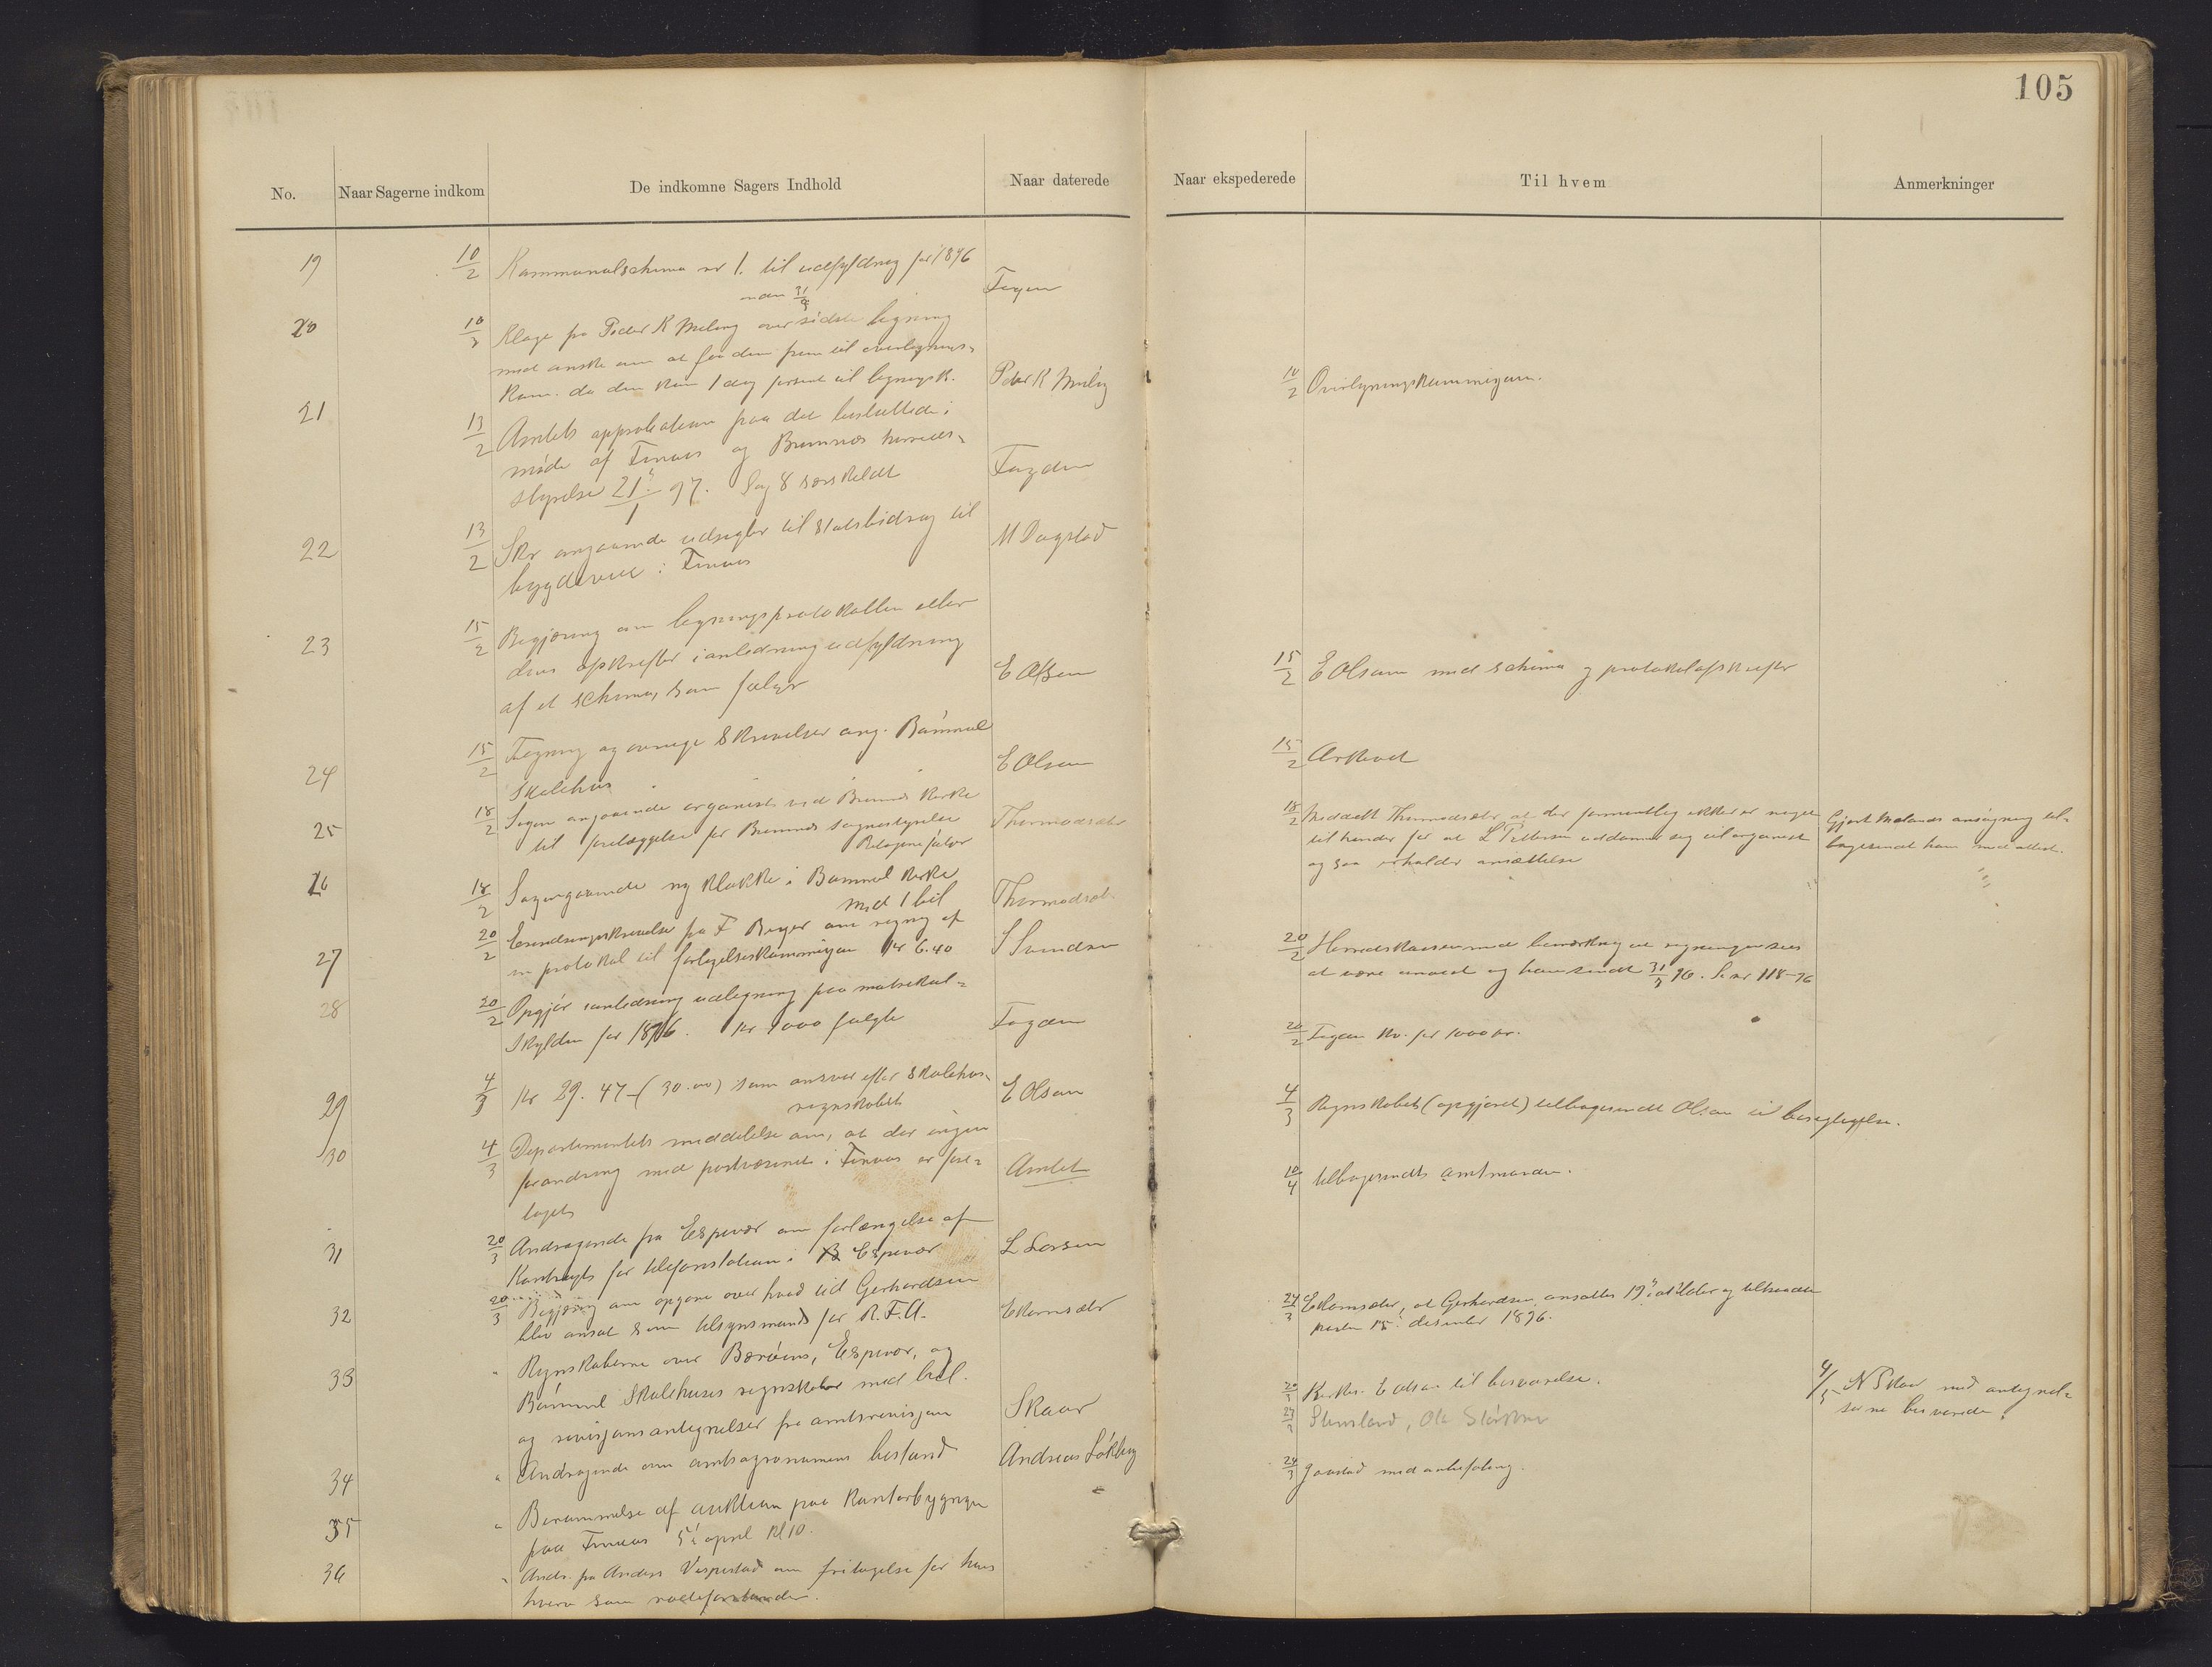 105
No.
Naar Sagerne indkom
De indkomne Sagers Indhold
Naar daterede
Naar ekspederede
Til hvem
Anmerkninger
19 10/2 Kommunalschema nr 1. til udfyldning for 1896
Fogden
20 10/2 Klage fra Peder K Meling over sidste ligning
med ønske om at faa den frem til overlignings-
kom. da den kom 1 dag forsent til ligningsk. Peder K Meling
10/2 Overligningskommisjonen.
21 13/2 Amtets approbation paa det besluttede i
møde af Finaas og Bremnes herreds-
styrelse 21/1 97. Sag 8 særskildt Fogden
22 13/2 Skr angaaende udsigter til statsbidrag til
bygdeveie i Finaas M Døgstad
23 15/2 Begjæring om ligningsprotokollen eller
dens afskrifter i anledning udfyldning
af et schema, som følger E Olsen
15/2 E Olsen med schema og protokolafskrifter
24 15/2 Tegning og øvrige skrivelser ang. Bømmel
Skolehus E Olsen
15/2 Arkivet
25 18/2 Sagen angaaende organist ved Bremnes kirke
til forelæggelse for Bremnes sognestyrelse
Bilagene følger Thormodsæter
18/2 Meddelt Thormodsæter at der formentlig ikke er noget
til hinder for at L Pettersen uddanner sig til organist
og saa erholder ansættelse
Gjert Mælands ansøgning til-
bagesendt ham med attest.
26 18/2 Sag angaaende ny klokke i Bømmel kirke
med 1 bil Thormodsæt.
27 20/2 Erindringsskrivelse fra F Beyer om regning af
en protokol til forligelseskommisjonen kr 6.40 S Svendsen
20/2 Herredskassereren med bemærkning at regningen sees
at være anvist og ham sendt 31/3 96. Se nr 118-96
28 20/2 Opgjør i anledning udligning paa matrikul-
skylden for 1896. kr 1000 fulgte Fogden
20/2 Fogden kv. for 1000 kr.
29 4/3 kr 29.47 (30.00) som ansvar efter skolehus-
regnskabet E Olsen
4/3 Regnskabet (opgjøret) tilbagesendt Olsen til besigtigelse.
30 4/3 Departementets meddelelse om, at der ingen
forandring med postvæsenet i Finaas er fore-
taget Amtet
10/4 tilbagesendt amtmanden.
31 20/3 Andragende fra Espevær om forlængelse af
Kontrakt for telefonstation i Espevær L Larsen
32 20/3 Begjæring om opgave over hvad tid Gerhardsen
blev ansat som tilsynsmand for R.F.A. E Ramsæter
24/3 E Ramsæter, at Gerhardsen ansattes 19de oktober og tiltraadte
posten 15de desember 1896.
33 " Regnskaberne over Børøens, Espevær, og
Bømmel Skolehuses regnskaber med bil.
og revisjonsantegnelser fra amtsrevisjonen Skaar
Kirkes. E Olsen til besvarelse.
Stensland, Ole
4/5 N Skaar med antegnel-
serne besvarede.
34 " Andragende om amtsagronomens bistand Andreas Løkling
24/3 Gaastad med anbefaling.
35 " Berammelse af auktion paa kontorbygningen
paa Finaas 5te april kl 10.
36 " Andr. fra Anders Vespestad om fritagelse for hans
hverv som rodeforstander.